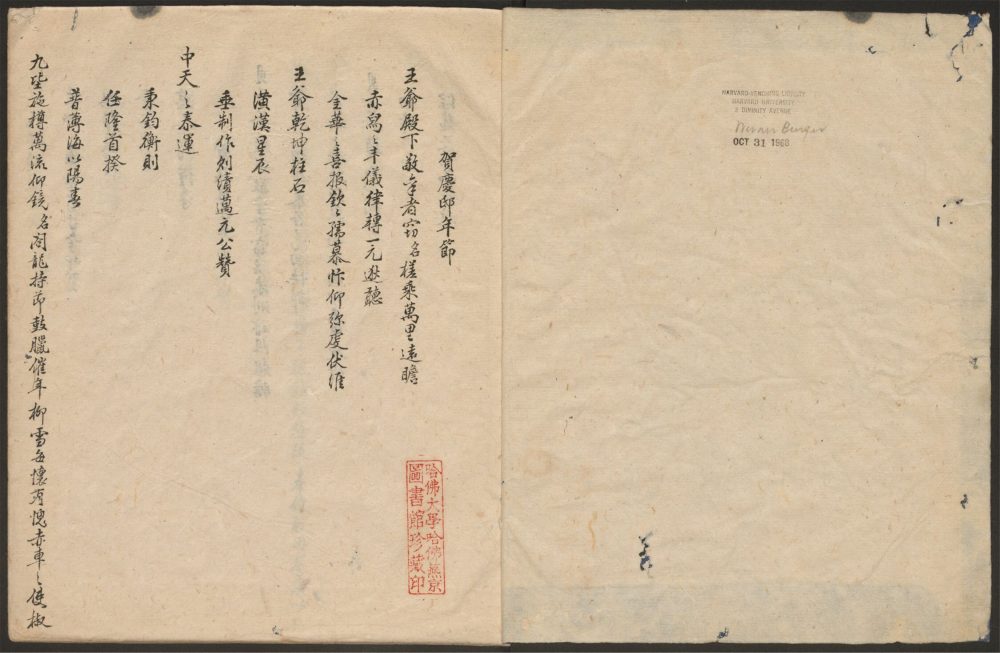 賀慶邸年節
王爺殿下敬稟者竊名槎乘萬里遠瞻
赤舃之丰儀律轉一元逖聽
金華之喜報欽之孺慕忭仰弥虔伏維
王爺乾坤柱石
潢漢星辰
垂制作創績邁元公贊
中天之泰運
秉鈞衡則
任隆首揆
普薄海以陽春
九埏施樽萬流仰鏡名閣龍持節鼓臘催年柳雪每懷有愧赤車之使椒
哈佛大學哈佛燕京
圖書館珍藏印
HARVARD-YENCHING LIBRARY
HARVARD UNIVERSITY
2 DIVINITY AVENUE
OCT 31 1968